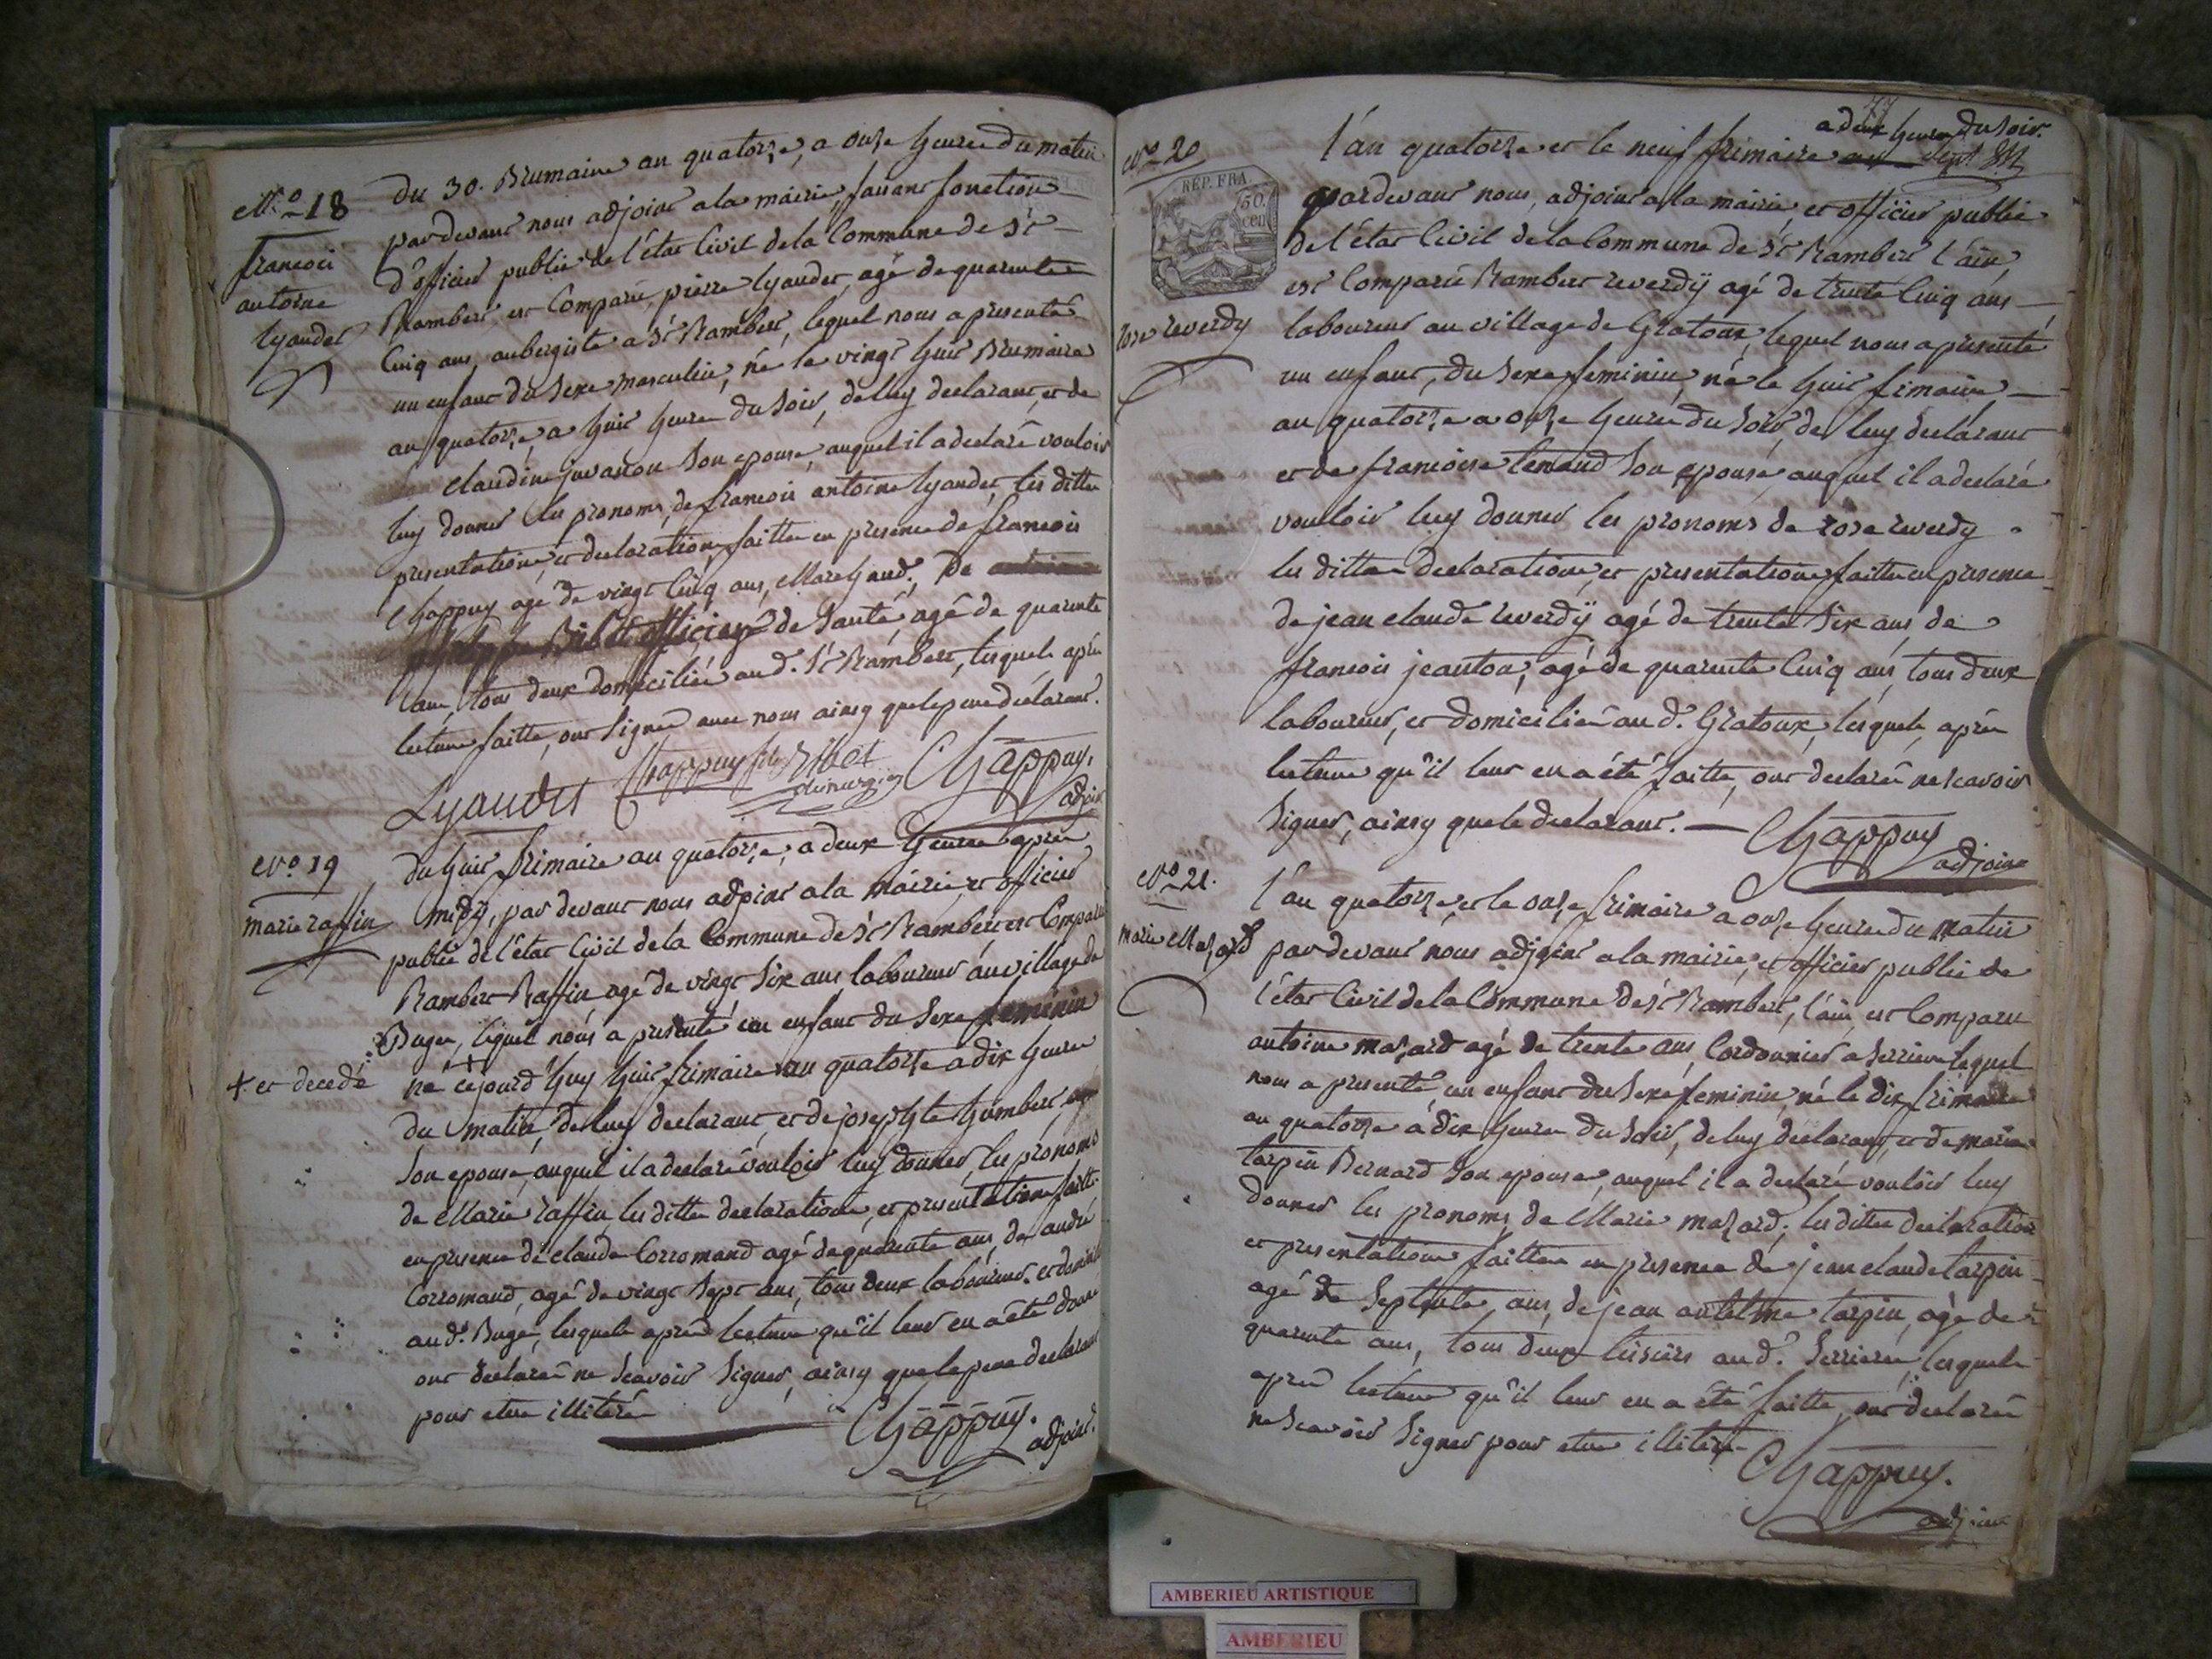 No 18
francois
antoine
lyandet
du 30. Brumaire an quatorze, a onze heures du matin
par devant nous adjoint a la mairie, faisant fonction
d'officier public de l'état Civil de la Commune de St
Rambert est Comparu, pierre lyandet, agé de quarente
Cinq ans, aubergiste a St Rambert, lequel nous a presenté
un enfant du Sexe masculin, né le vingt huit Brumaire
an quatorze, a huit heures du Soir, de luy declarant, et de
claudine juvanon Son epouse, auquel il a declaré vouloir
luy donner les pronoms, de francois antoine lyandet, les dittes
presentation, et declaration faittes en presence de francois
Chappuy agé de vingt Cinq ans, Marchand, De
Ribot officier de Santé, agé de quarente
ans, tous deux domiciliés au d. St Rambert, lesquels après
lecture faitte, ont Signé avec nous ainsy que le pere déclarant.
Lyandet Chappuy fils Ribot
chirurgien Chappuy.
adjoint
No 19
marie raffin
+ et decedé
du huit frimaire an quatorze, a deux heures après
midÿ, par devant nous adjoint a la mairie, et officier
public de l'état Civil de la Commune de St Rambert est Comparu
Rambert Raffin, agé de vingt Six ans, laboureur au village de
Buges, lequel nous a presenté un enfant du Sexe feminin
né + cejourd'huy huit frimaire an quatorze a dix heures
du matin, de luy declarant, et de josephte humbert
Son epouse, auquel il a declaré vouloir luy donner, les pronoms
de Marie raffin, les dittes declaration, et presentation faitte
en presence de claude Corromand agé de quarente ans, de andré
Corromand, agé de vingt Sept ans, tous deux laboureurs et domiciliés
au d. Buge, lesquels après lecture qu'il leur en a été donné
ont declaré ne Scavoir Signer, ainsy que le pere declarant
pour etre illiteré
Chappuy.
adjoint.
77
No 20
RÉP. FRA.
50.
cen
rose reverdy
a deux heures du Soir.
l'an quatorze et le neuf frimaire
pardevant nous, adjoint a la mairie, et officier public
de l'état Civil de la Commune de St Rambert l'ain,
est Comparu Rambert reverdÿ agé de trente Cinq ans
laboureur au village de Gratoux, lequel nous a presenté
un enfant, du Sexe feminin, né le huit frimaire
an quatorze a onze heures du Soir, de luy declarant
et de francoise tenand Son epouse, auquel il a declaré
vouloir luy donner les pronoms de rose reverdy
les dittes declaration, et presentation faittes en presence
de jean claude reverdÿ agé de trente Six ans, de
francois jeanton, agé de quarente Cinq ans, tous deux
laboureurs, et domiciliés au d. Gratoux, lesquels, après
lecture qu'il leur en a été faitte, ont declaré ne Scavoir
Signer, ainsy que le declarant.
Chappuy
adjoint
No 21.
marie Mazard
l'an quatorze, et le onze frimaire a onze heures du matin
par devant nous adjoint a la mairie, et officier public de
l'état Civil de la Commune de St Rambert, l'ain, est Comparu
antoine mazard agé de trente ans Cordonnier a Serrieres lequel
nous a presenté, un enfant du Sexe feminin, né le dix frimaire
an quatorze a dix heures du Soir, de luy declarant, et de marie
tarpin Bernard Son epouse, auquel il a declaré vouloir luy
donner les pronoms, de Marie mazard, les dittes declaration
et presentation faittes en presence de jean claude tarpin
agé de Septente ans, de jean antelme tarpin, agé de
quarente ans, tous deux tisseurs au d. Serrieres, lesquels
après lecture qu'il leur en a été faitte, ont declaré
ne Scavoir Signer pour etre illiteré
Chappuy.
adjoint
AMBERIEU ARTISTIQUE
AMBERIEU